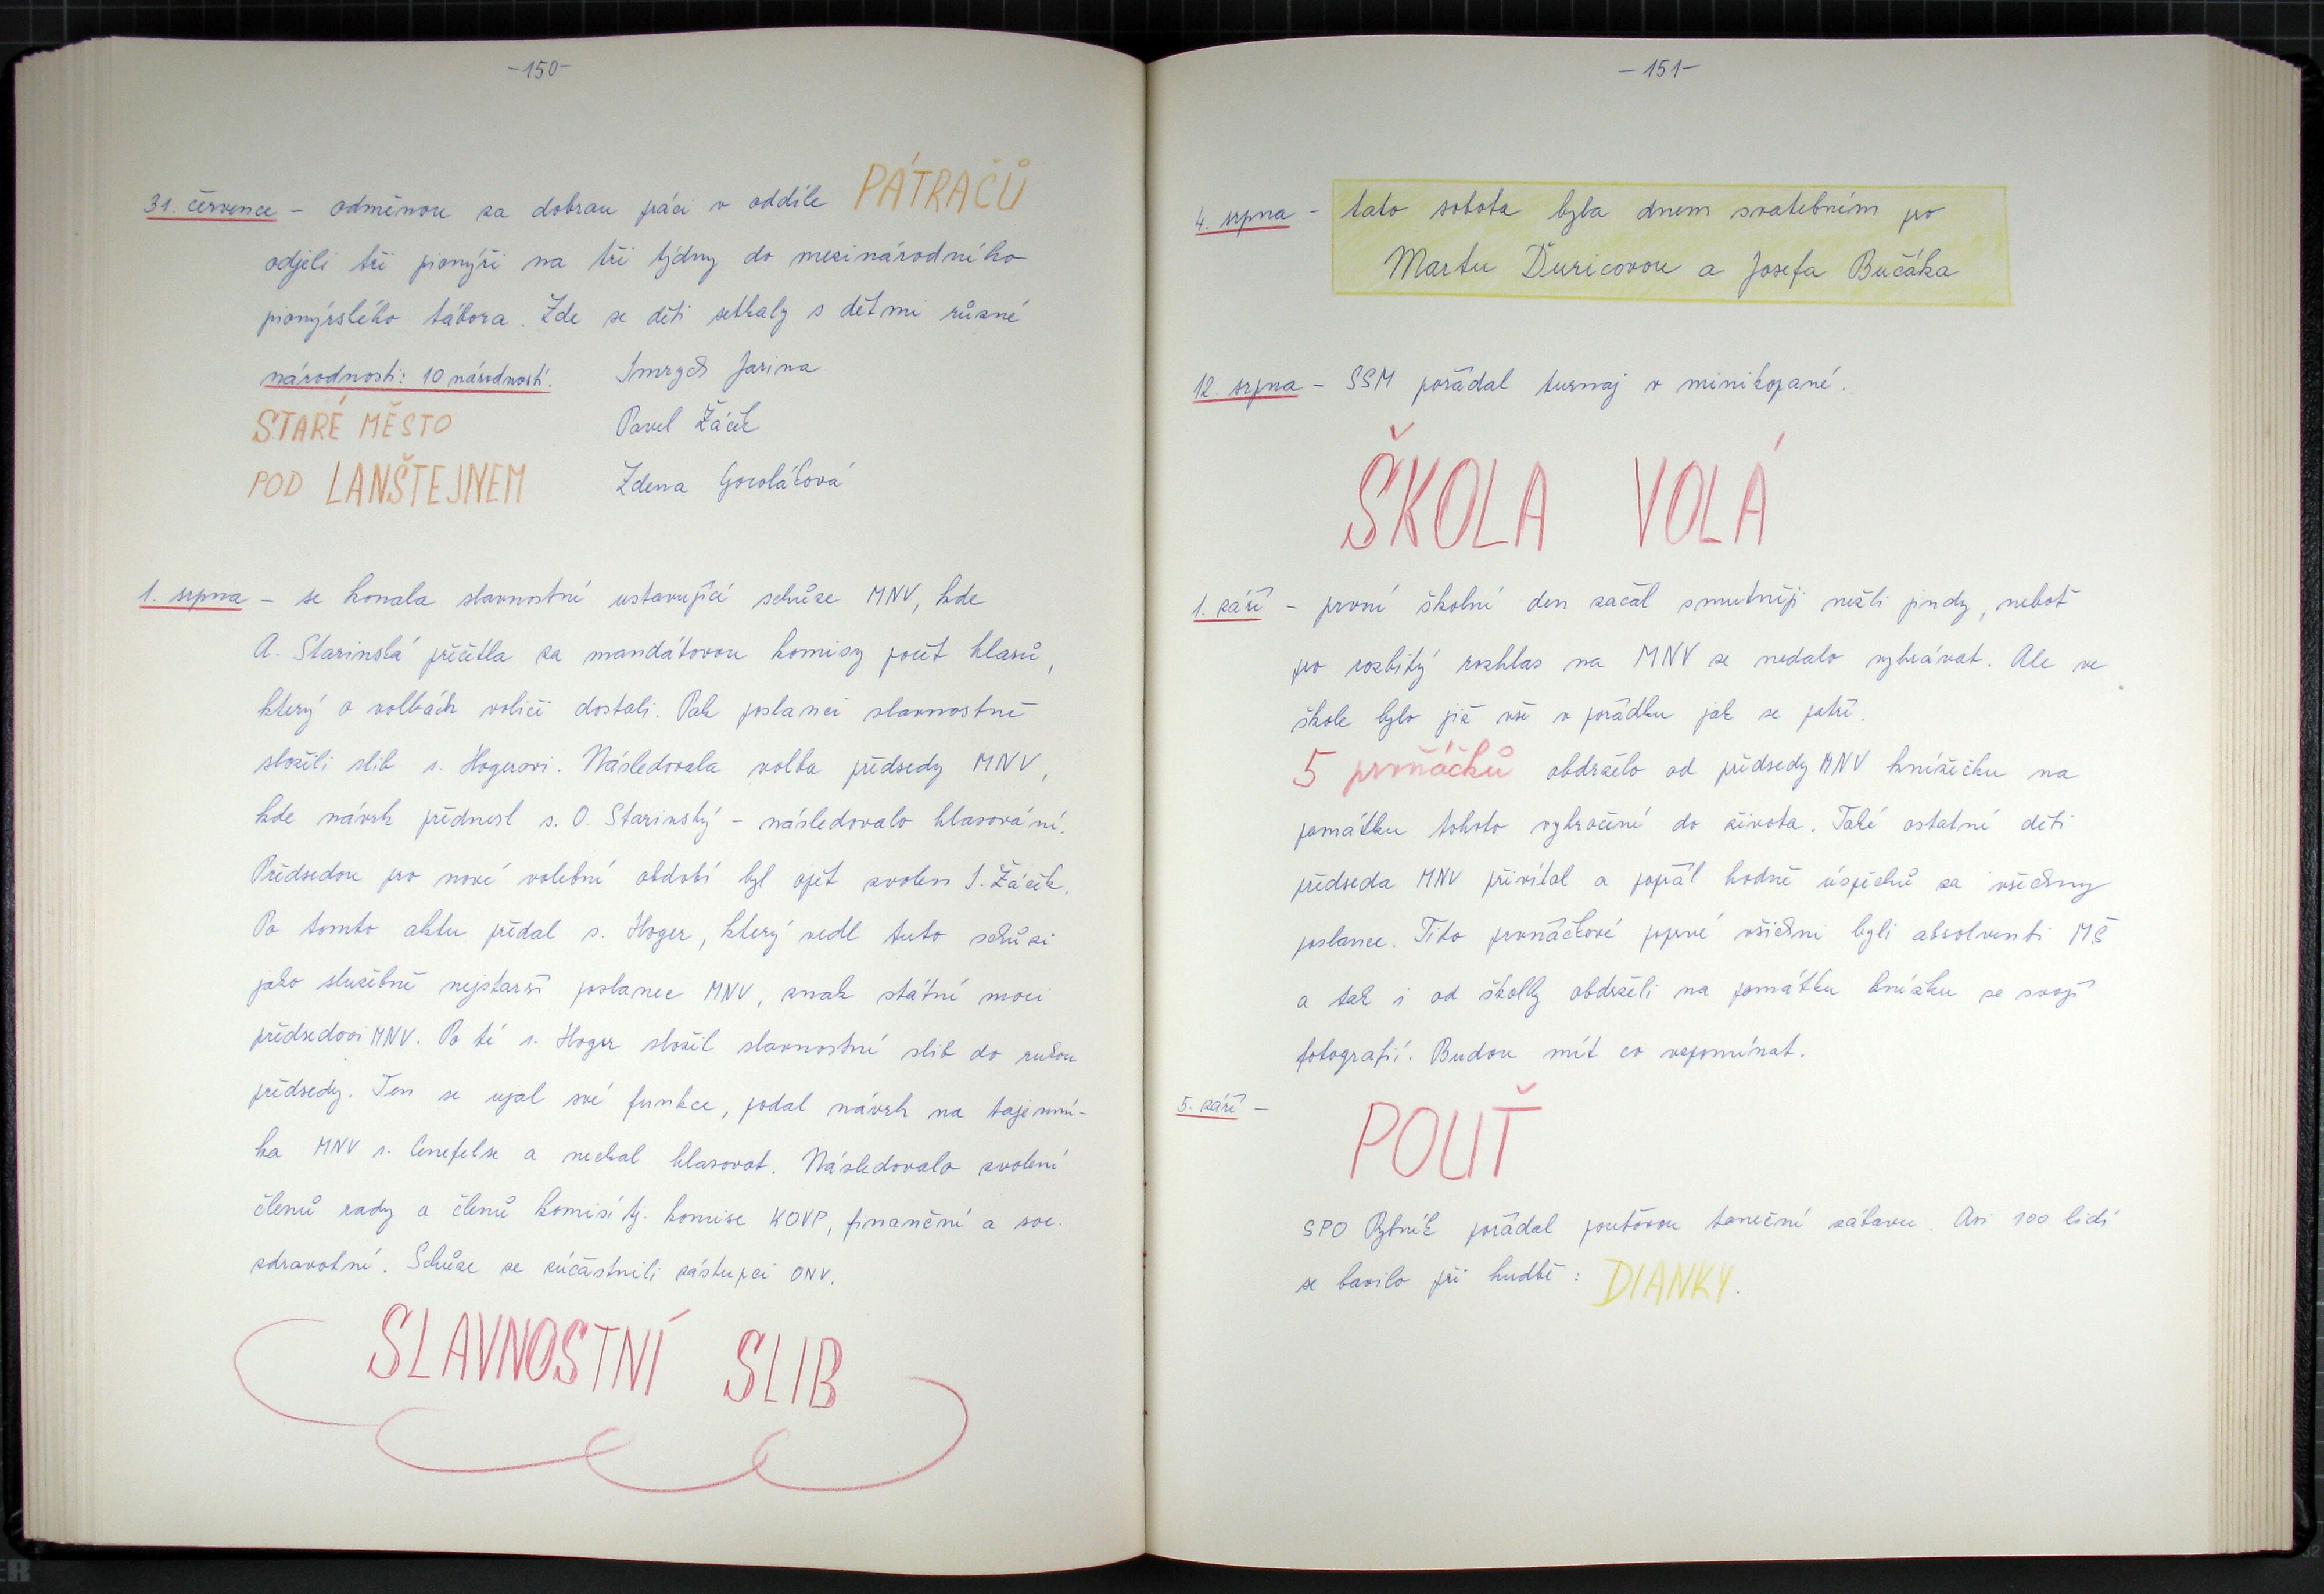 -150-
31. července - odměnou za dobrou práci v oddíle PÁTRAČŮ
odjeli tři pionýři na tři týdny do mezinárodního
pionýrského tábora. Zde se děti setkaly s dětmi různé
národnosti: 10 národností. Imrych Jarina
STARÉ MĚSTO Pavel Žáček
POD LANŠTEJNEM Zdena Gorolátová
1. srpna - se konala slavnostní ustavující schůze MNV, kde
A. Starinská přečetla za mandátovou komisy počet hlasů,
který o volbách voliči dostali. Pak poslanci slavnostně
složili slib s. Hogerovi. Následovala volba předsedy MNV,
kde návrh přednesl s. O. Starinský - následovalo hlasování.
Předsedou pro nové volební období byl opět zvolen J. Žáček.
Po tomto aktu předal s. Hoger, který vedl tuto schůzi
jako služebně nejstarší poslanec MNV, znak státní moci
předsedovi MNV. Po té s. Hoger složil slavnostní slib do rukou
předsedy. Ten se ujal své funkce, podal návrh na tajemní-
ka MNV s. Cenefelse a nechal hlasovat. Následovalo zvolení
členů rady a členů komisí tj. komise KOVP, finanční a soc.
zdravotní. Schůze se zúčastnili zástupci ONV.
SLAVNOSTNÍ SLIB
-151-
4. srpna - tato sobota byla dnem svatebním pro
Martu Ďuricovou a Josefa Bučáka
12. srpna - SSM pořádal turnaj v minikopané.
ŠKOLA VOLÁ
1. září - první školní den začal smutněji nežli jindy, neboť
pro rozbitý rozhlas na MNV se nedalo vyhrávat. Ale ve
škole bylo již vše v pořádku jak se patří.
5 prvňáčků obdrželo od předsedy MNV knížečku na
památku tohoto vykročení do života. Také ostatní děti
předseda MNV přivítal a popřál hodně úspěchů za všechny
poslance. Tito prvňáčkové poprvé všichni byli absolventi MŠ
a tak i od školky obdrželi na památku knížku se svojí
fotografií. Budou mít co vzpomínat.
5. září -
POUŤ
SPO Rybník pořádal pouťovou taneční zábavu. Asi 100 lidí
se bavilo při hudbě: DIANKY.